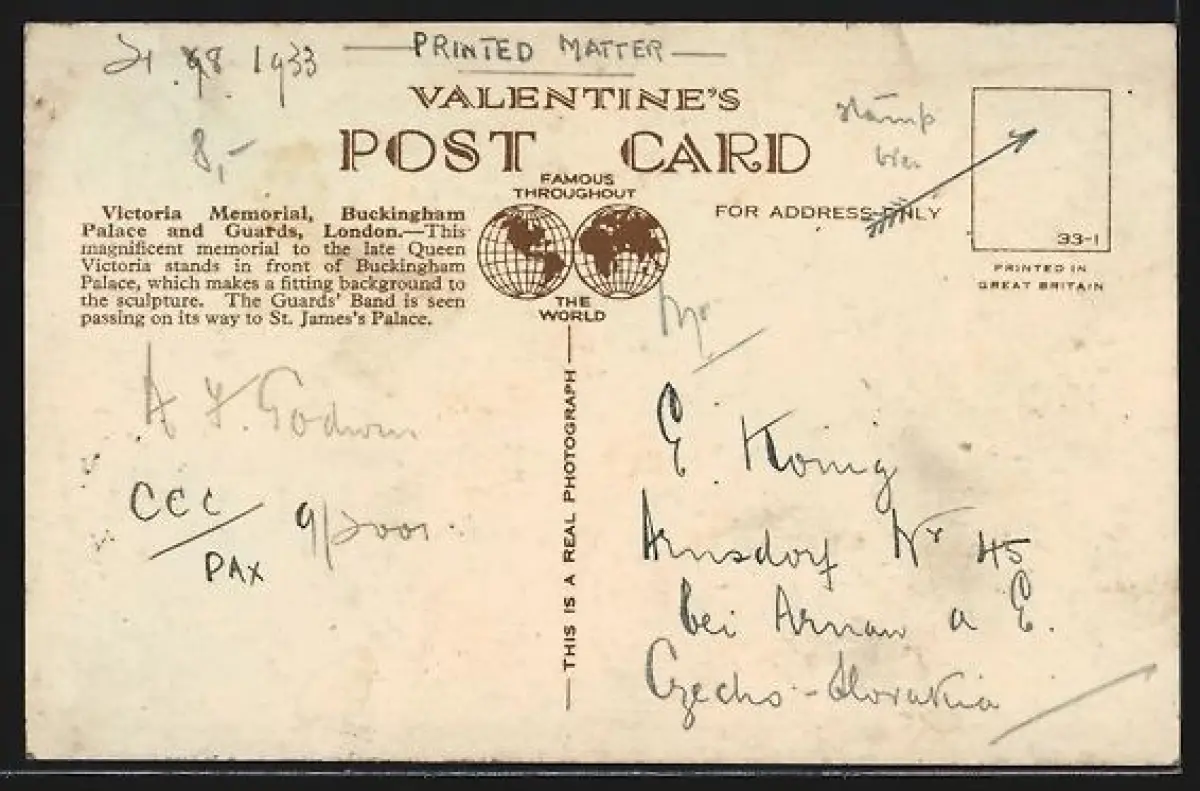 1933
PRINTED MATTER
8,-
VALENTINE'S
POST CARD
FAMOUS
THROUGHOUT
THE
WORLD
stamp
FOR ADDRESS ONLY
33-1
PRINTED IN
GREAT BRITAIN
Victoria Memorial, Buckingham
Palace and Guards, London.—This
magnificent memorial to the late Queen
Victoria stands in front of Buckingham
Palace, which makes a fitting background to
the sculpture. The Guards' Band is seen
passing on its way to St. James's Palace.
A F. Godwin
CCC
PAX
THIS IS A REAL PHOTOGRAPH
E. König
Arnsdorf Nr 45
bei Arnau a E.
Czecho-Slovakia